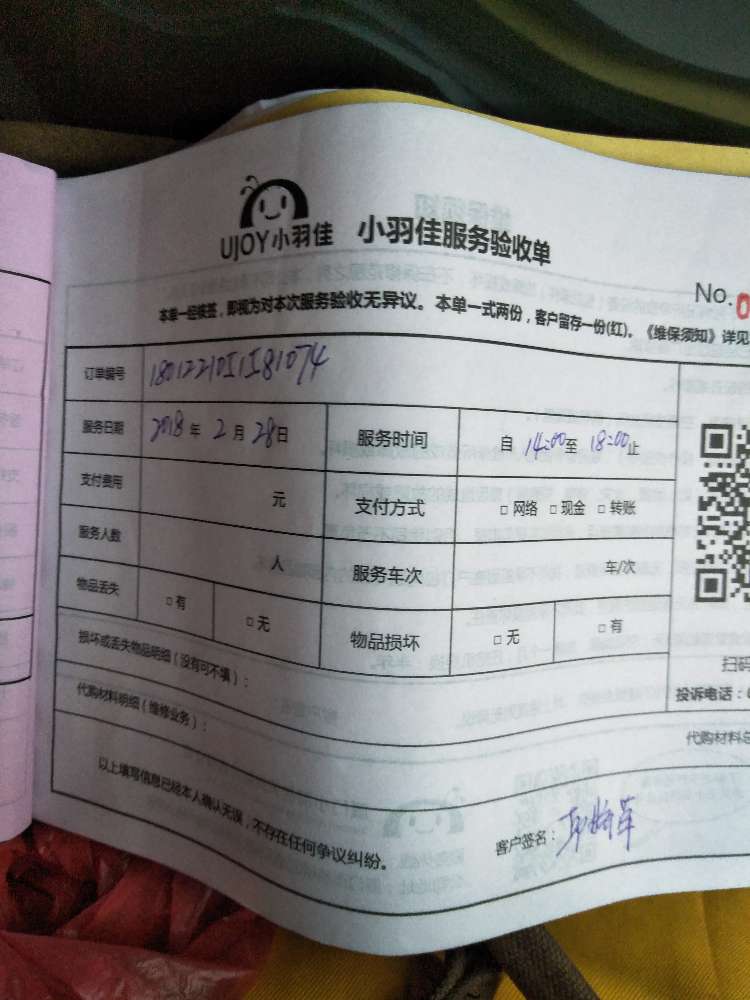 UJOY小羽佳 小羽佳服务验收单
No.0
本单一经核签，即视为对本次服务验收无异议。本单一式两份，客户留存一份(红)。《维保须知》详见
订单编号
服务日期 2018 年 2 月 28 日 服务时间 自 14:00 至 18:00 止
支付费用 元 支付方式 □ 网络 □ 现金 □ 转账
服务人数 人 服务车次 车/次
物品丢失 □ 有 □ 无 物品损坏 □ 无 □ 有
损坏或丢失物品明细（没有可不填）：
扫码
投诉电话：
代购材料明细（维修业务）：
代购材料总
以上填写信息已经本人确认无误，不存在任何争议纠纷。
客户签名：